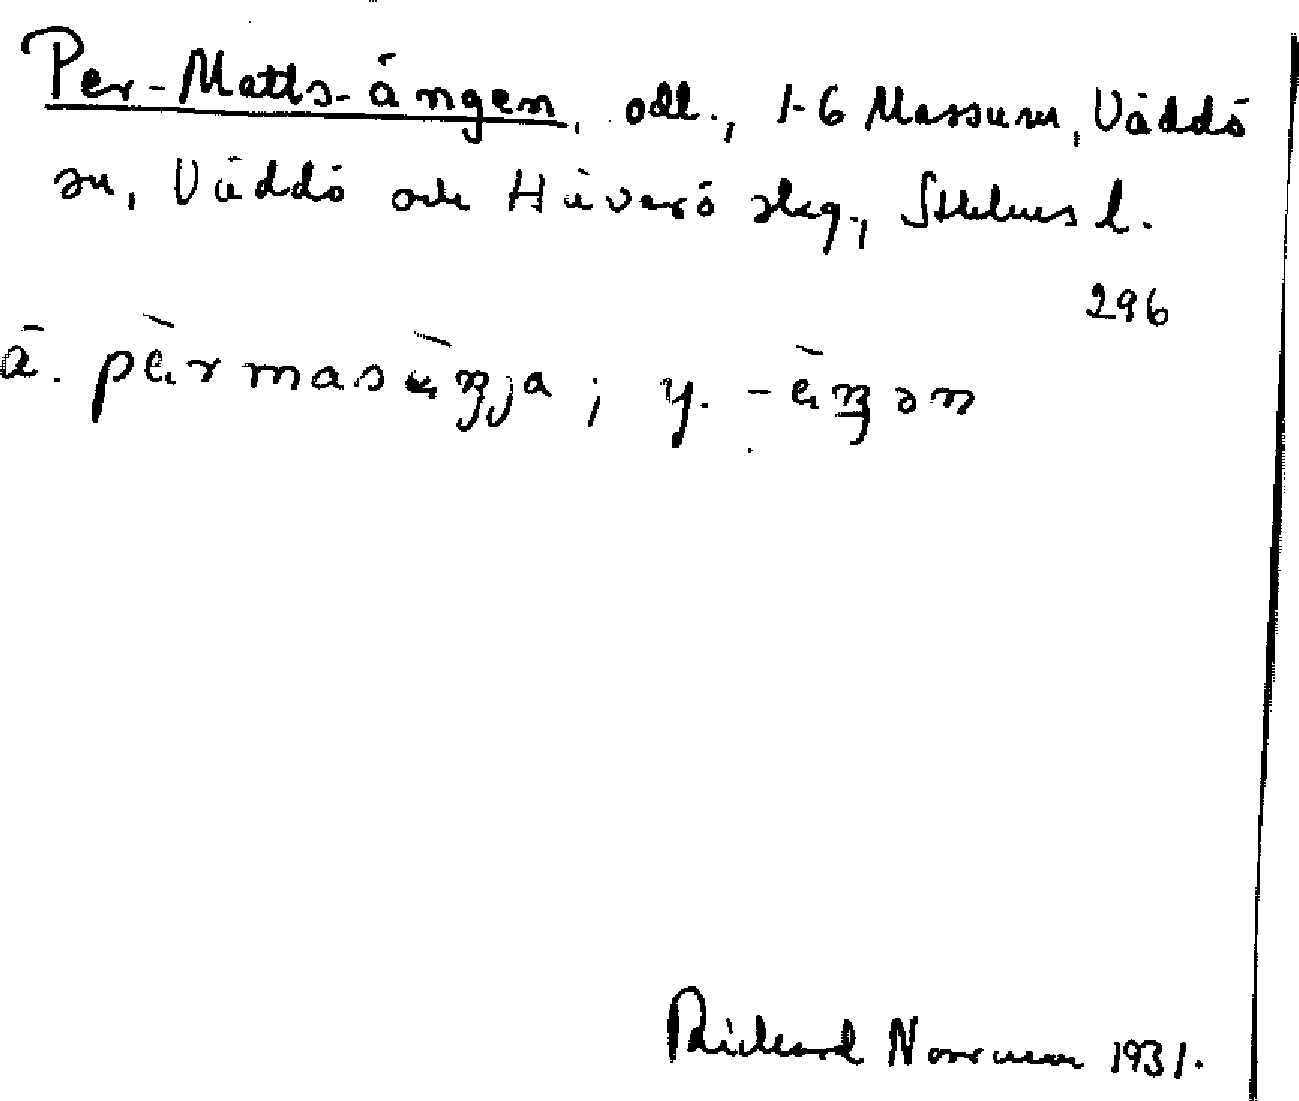 Per-Matts-ängen, odl., 1-6 Massum, Väddö
sn, Väddö och Häverö skg., Sthlms l.
296
ä. pèrmasèŋja ; y. -èŋən
Richard Norrman 1931.